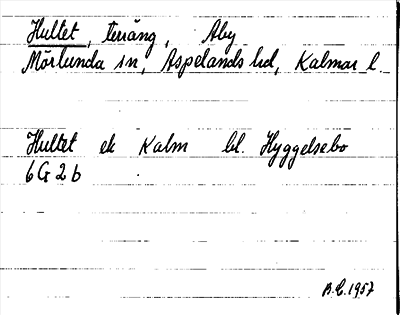 Hultet, terräng, Åby
Mörlunda sn, Aspelands hd, Kalmar l.
Hultet ek Kalm bl. Hyggelsebo
6G2b
B.E. 1957